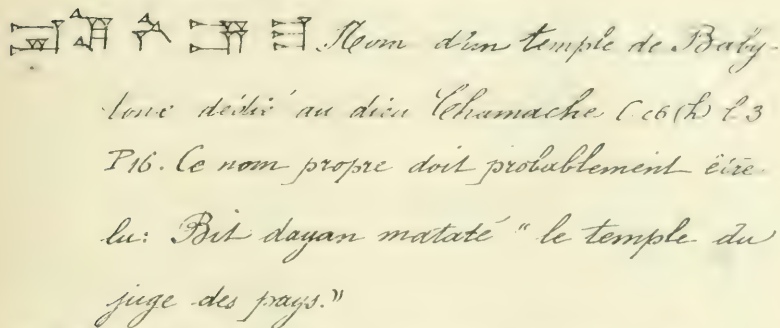 𒂍 𒁲 𒋻 𒌦 𒈠 Nom d'un temple de Baby-
lone dédié au dieu Chamache C c6(h) l 3
P16. Ce nom propre doit probablement être
lu: Bit dayan mataté " le temple du
juge des pays."